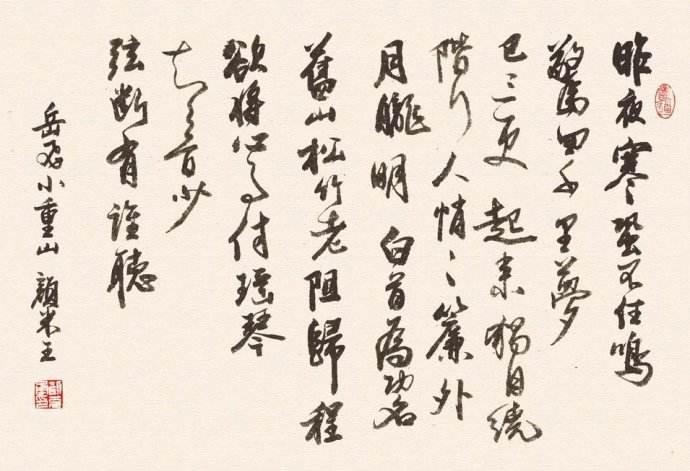 昨夜寒蛩不住鳴
驚回千里夢
已三更 起來獨自繞
階行 人悄悄 簾外
月朧明 白首為功名
舊山松竹老 阻歸程
欲將心事付瑤琴
知音少
弦斷有誰聽
岳飛小重山 顏米王